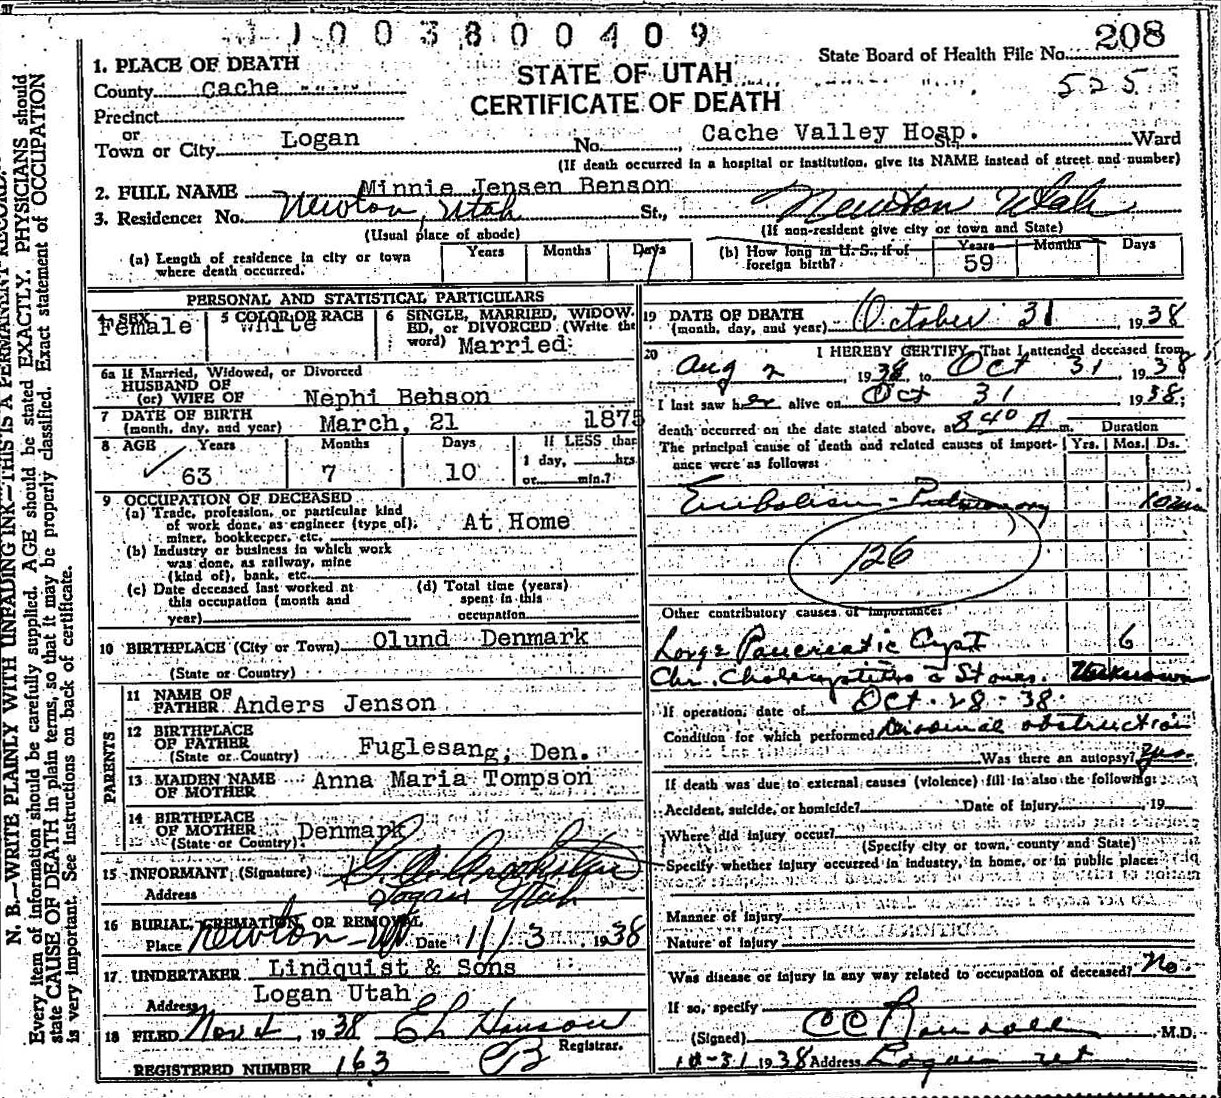 1003800409
208
1. PLACE OF DEATH
State Board of Health File No.
STATE OF UTAH
County Cache
525
CERTIFICATE OF DEATH
Precinct
or
Town or City Logan No. Cache Valley Hosp. St., Ward
(If death occurred in a hospital or institution, give its NAME instead of street and number)
2. FULL NAME Minnie Jensen Benson
3. Residence: No. Newton, Utah St., Newton Utah
(Usual place of abode) (If non-resident give city or town and State)
(a) Length of residence in city or town where death occurred. Years Months Days 1
(b) How long in U. S., if of foreign birth? Years 59 Months Days
PERSONAL AND STATISTICAL PARTICULARS
4 SEX Female
5 COLOR OR RACE White
6 SINGLE, MARRIED, WIDOW-
ED, or DIVORCED (Write the
word) Married
6a If Married, Widowed, or Divorced
HUSBAND OF
(or) WIFE OF Nephi Behson
7 DATE OF BIRTH
(month, day, and year) March, 21 1875
8 AGE Years Months Days If LESS than
63 7 10 1 day, hrs
or min.?
9 OCCUPATION OF DECEASED
(a) Trade, profession, or particular kind
of work done, as engineer (type of), At Home
miner, bookkeeper, etc.
(b) Industry or business in which work
was done, as railway, mine
(kind of), bank, etc.
(c) Date deceased last worked at
this occupation (month and
year)
(d) Total time (years)
spent in this
occupation
10 BIRTHPLACE (City or Town) Olund Denmark
(State or Country)
PARENTS
11 NAME OF
FATHER Anders Jenson
12 BIRTHPLACE
OF FATHER Fuglesang, Den.
(State or Country)
13 MAIDEN NAME
OF MOTHER Anna Maria Tompson
14 BIRTHPLACE
OF MOTHER Denmark
(State or Country)
15 INFORMANT (Signature)
Address Logan Utah
16 BURIAL, CREMATION, OR REMOVAL
Place Newton Ut Date 11/3 1938
17 UNDERTAKER Lindquist & Sons
Address Logan Utah
18 FILED Nov 4, 1938 Hanson
Registrar.
REGISTERED NUMBER 163
19 DATE OF DEATH
(month, day, and year) October 31 1938
20 I HEREBY CERTIFY, That I attended deceased from
Aug 2 1938 to Oct 31 1938
I last saw her alive on Oct 31 1938;
death occurred on the date stated above, at 840 A m. Duration
The principal cause of death and related causes of import- Yrs. Mos. Ds.
ance were as follows:
Embolism - Pulmonary 10 min
126
Other contributory causes of importance:
Large Pancreatic Cyst 6
Chr. Cholecystitis c Stones. Unknown
If operation, date of Oct-28-38.
Condition for which performed Duodenal obstruction
Was there an autopsy? yes.
If death was due to external causes (violence) fill in also the following:
Accident, suicide, or homicide? Date of injury , 19
Where did injury occur?
(Specify city or town, county and State)
Specify whether injury occurred in industry, in home, or in public place:
Manner of injury
Nature of injury
Was disease or injury in any way related to occupation of deceased? No.
If so, specify
(Signed) CC Randall M.D.
10-31 1938 Address Logan Ut
N. B.—WRITE PLAINLY WITH UNFADING INK—THIS IS A PERMANENT RECORD.
Every item of information should be carefully supplied. AGE should be stated EXACTLY. PHYSICIANS should
state CAUSE OF DEATH in plain terms, so that it may be properly classified. Exact statement of OCCUPATION
is very important. See instructions on back of certificate.